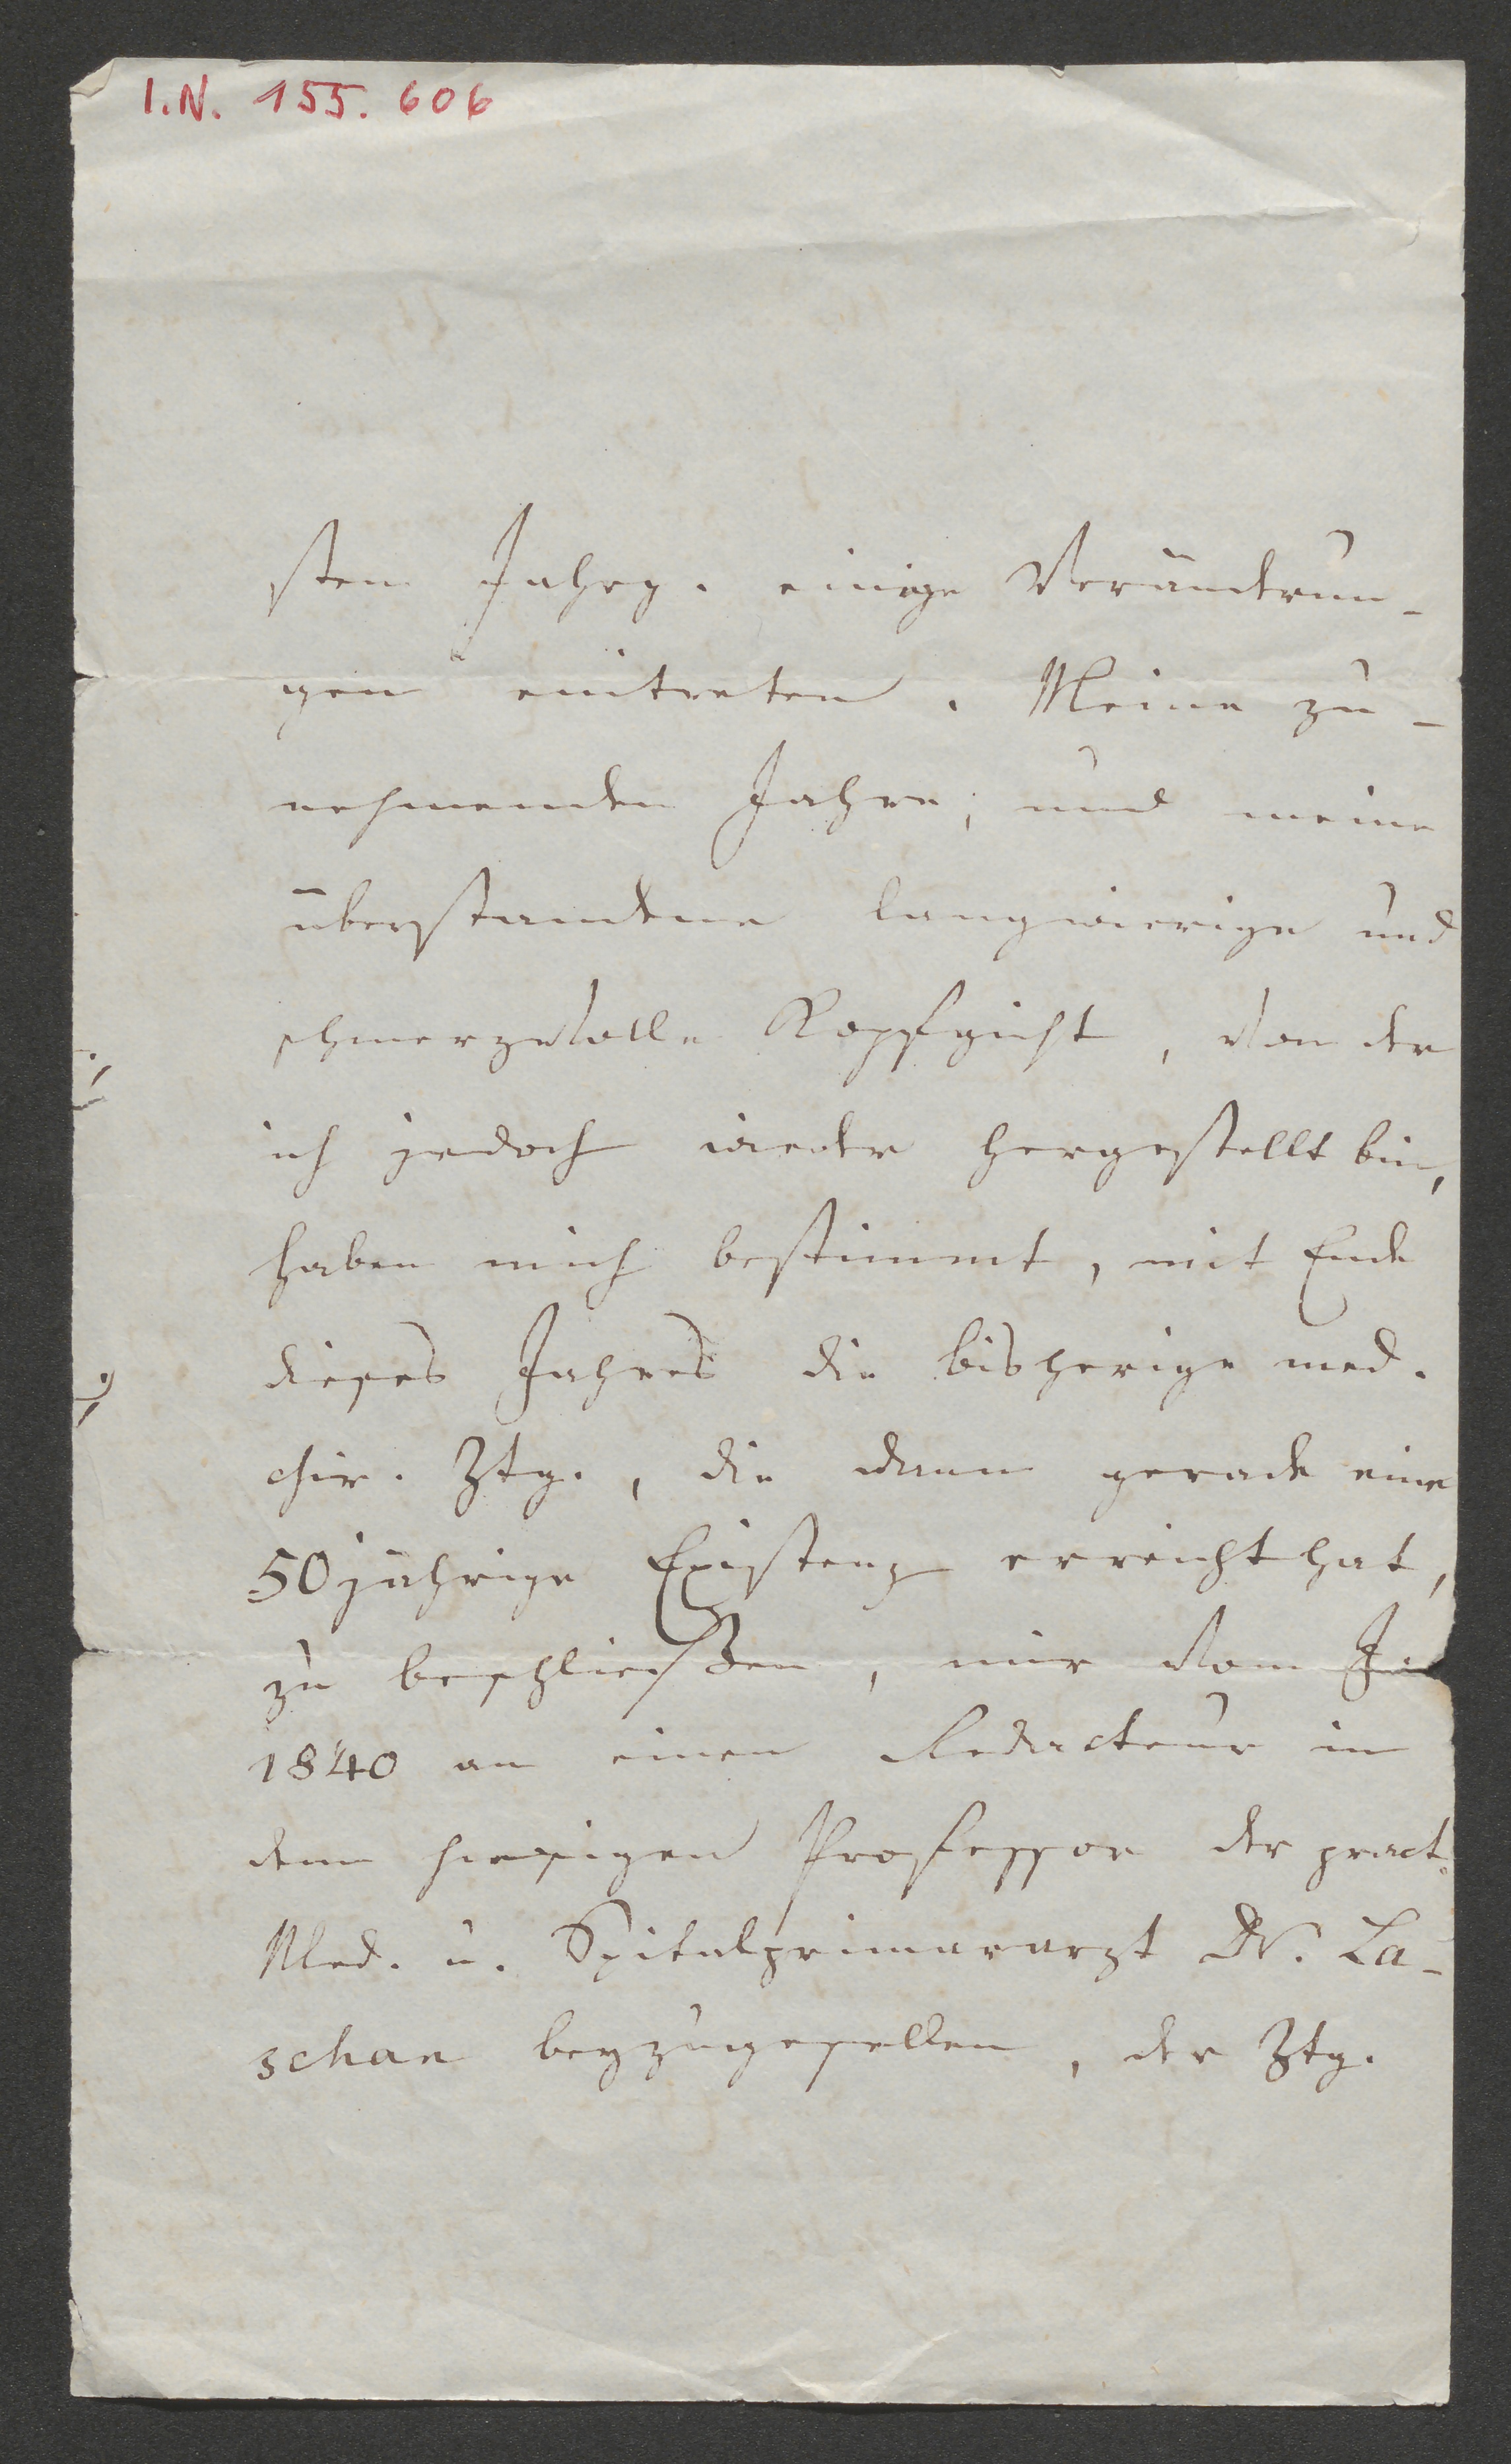 I.N. 155.606
sten Jahrg. einige Veränderun-
gen eintreten. Meine zu-
nehmenden Jahre, und meine
überstandene langwierige und
schmerzvolle Kopfgicht, von der
ich jedoch wieder hergestellt bin,
haben mich bestimmt, mit Ende
dieses Jahres die bisherige med.
chir. Ztg., die dann gerade eine
50jährige Existenz erreicht hat,
zu beschließen, mir vom J.
1840 an einen Redacteur in
dem hiesigen Professor der pract.
Med. u. Spitalprimararzt Dr. La-
schan beyzugesellen, der Ztg.